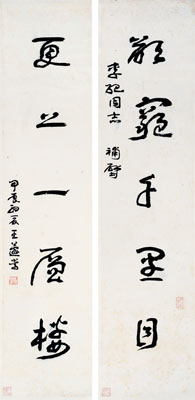 欲窮千里目
李同志 補壁
更上一層樓
甲初王蘧常